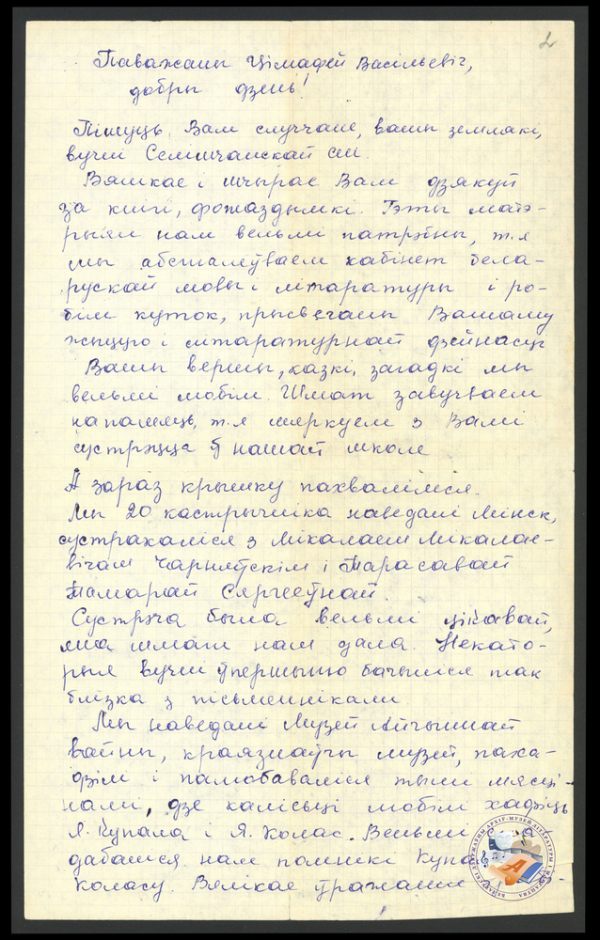 2
Паважаны Цімафей Васільевіч,
добры дзень!
Пішуць Вам случчане, вашы землякі,
вучні Семінчанскай сш.
Вялікае і шчырае Вам дзякуй
за кнігі, фотаздымкі. Гэты матэ-
рыял нам вельмі патрэбны, т.я
мы абсталёўваем кабінет бела-
рускай мовы і літаратуры і ро-
бім куток, прысвечаны Вашаму
жыццю і літаратурнай дзейнасці
Вашы вершы, казкі, загадкі мы
вельмі любім. Шмат завучваем
на памяць, т.я мяркуем з Вамі
сустрэцца ў нашай школе
А зараз крышку пахвалімся.
Мы 20 кастрычніка наведалі Мінск,
сустракаліся з Мікалаем Мікалае-
вічам Чарняўскім і Тарасавай
Тамарай Сяргееўнай.
Сустрэча была вельмі цікавай,
яна шмат нам дала. Некато-
рыя вучні ўпершыню бачыліся так
блізка з пісьменнікамі.
Мы наведалі Музей Айчыннай
вайны, краязнаўчы музей, паха-
дзілі і палюбаваліся тымі мясці-
намі, дзе калісьці любілі хадзіць
Я. Купала і Я. Колас. Вельмі
дабаліся нам помнікі
Коласу. Вялікае ўражанне